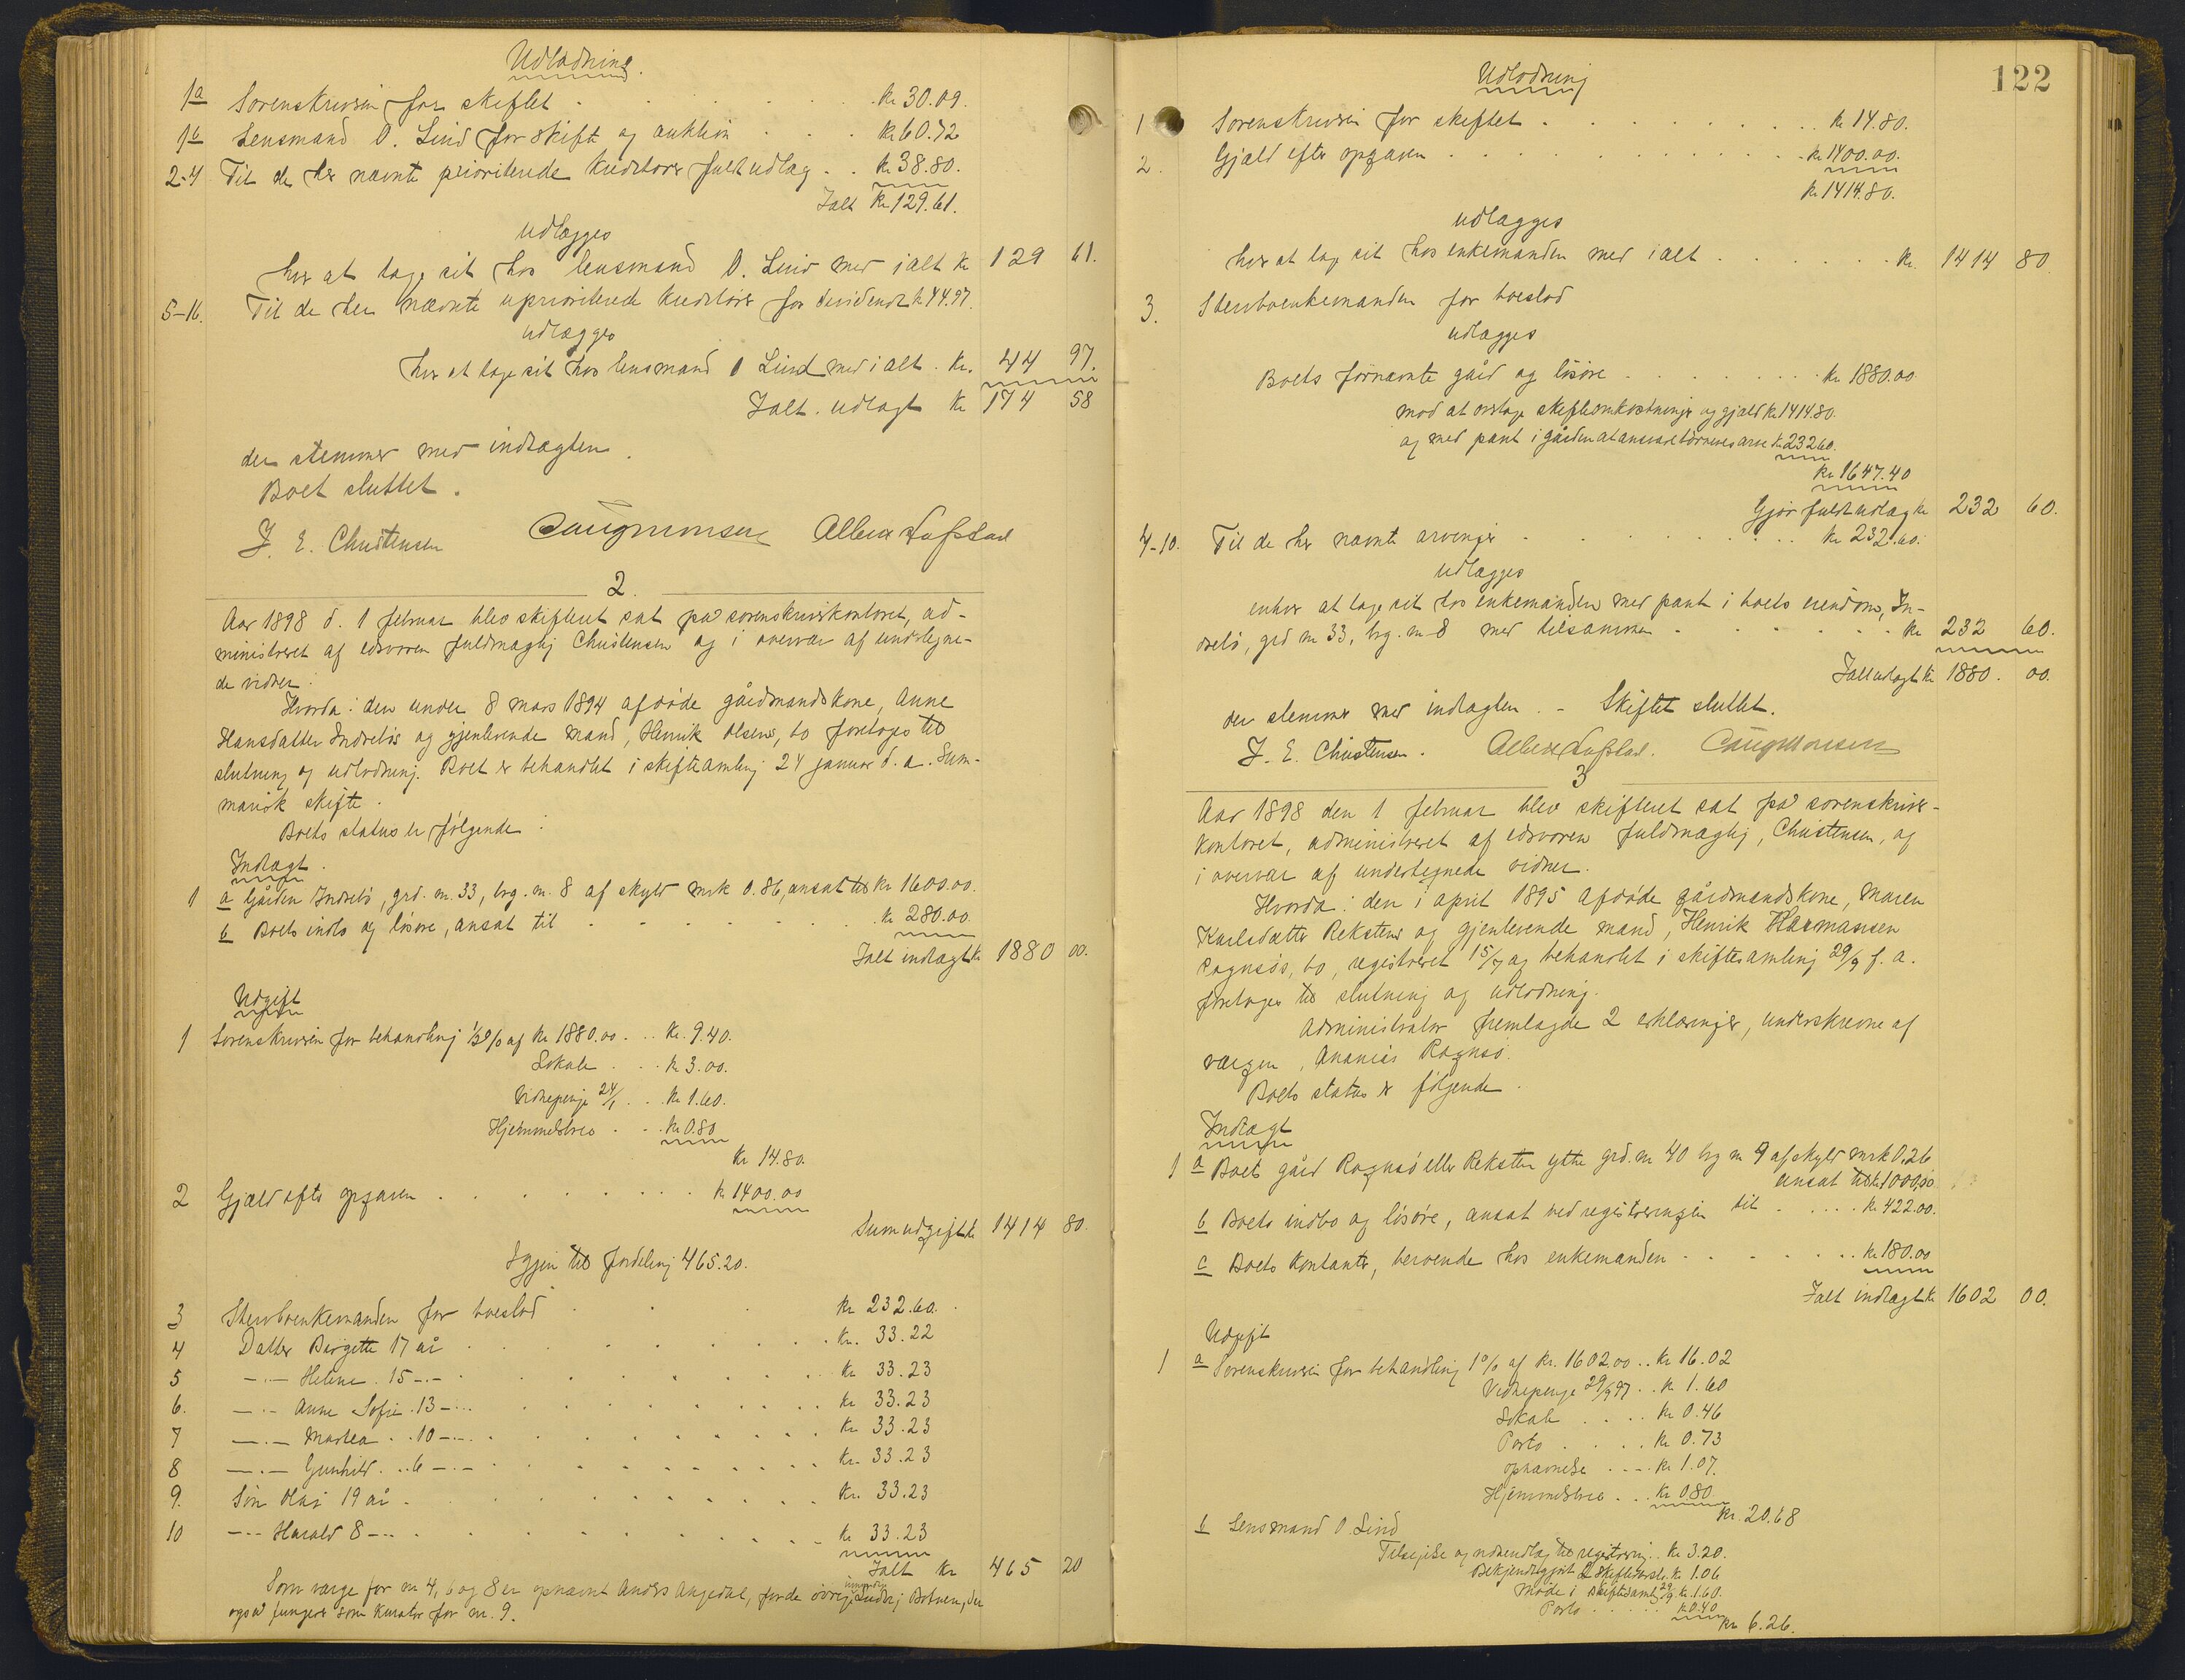 Udlodning.
1a Sorenskriveren for skiftet . . . kr 30.09.
1b Lensmand O. Lind for skift og auktion . . . kr 60.72
2-4 Til de her nævnte prioriterede kreditorer fuldt udlæg . . kr 38.80.
Ialt kr 129.61.
udlægges
hver at tage sit hos lensmand O. Lind med ialt kr 129 61.
5-16. Til de her nævnte uprioriterede kreditorer for dividende kr 44.97.
udlægges
hver at tage sit hos lensmand O Lind med ialt . kr. 44 97.
Ialt udlagt kr 174 58
der stemmer med indtægten.
Boet sluttet.
J. E. Christensen
2.
Aar 1898 d. 1 februar blev skifteret sat på sorenskriverkontoret, ad-
ministreret af edsvoren fuldmægtig Christensen og i overvær af undertegne-
de vidner:
Hvorda: den under 8 mars 1894 afdøde gårdmandskone, Anne
Hansdatter Indrebøs og gjenlevende mand, Henrik Olsens, bo foretoges til
slutning og udlodning. Boet er behandlet i skiftesamling 24 januar d. a. Sum-
marisk skifte.
Boets status er følgende:
Indtægt.
1 a Gården Indrebø, grd. nr. 33, brg. nr. 8 af skyld mrk 0.86, ansat til kr 1600.00.
b Boets indbo og løsøre, ansat til . . . kr 280.00
Ialt indtægt kr 1880 00.
Udgift
1 Sorenskriveren for behandling ½% af kr 1880.00 . . kr. 9.40.
Lokale . . . kr 3.00.
Vidnepenge 24/1 . . kr 1.60.
Hjemmelsbrev . . . kr 0.80
kr 14.80.
2 Gjæld efter opgaven . . . kr 1400.00
Sum udgift kr 1414 80.
Igjen til fordeling 465.20.
3 Stervboenkemanden for boeslod . . . kr 232.60.
4 Datter Birgitte 17 år . . . kr. 33.22
5 -"- Heline . 15 -"- . . . kr 33.23
6. -"- Anne Sofie . 13 -"- . . . kr 33.23
7 -"- Martea . . 10 -"- . . . kr 33.23
8 -"- Gunhild . . 6 -"- . . . kr. 33.23
9. Søn Olaf 19 år . . . kr. 33.23
10 -"- Harald 8 -"- . . . kr 33.23
Ialt kr 465 20
Som værge for nr 4, 6 og 8 er opnævnt Anders Angedal, for de øvrige umyndige
også fungerer som kurator for nr. 9.
122
Udlodning
1 Sorenskriveren for skiftet . . . kr 14.80.
2. Gjæld efter opgaven . . . kr 1400.00.
kr 1414.80.
udlægges
hver at tage sit hos enkemanden med ialt . . . kr. 1414 80.
3. Stervboenkemanden for boeslod
udlægges
Boets førnævnte gård og løsøre . . . kr 1880.00
mod at overtage skifteomkostninger og gjæld kr 1414.80.
og med pant i gården at ansvare børnenes arv kr 232.60.
kr 1647.40
Gjør fuldt udlæg kr 232 60.
4-10. Til de her nævnte arvinger . . . kr 232.60.
udlægges
enhver at tage sit hos enkemanden med pant i boets eiendom, In-
drebø, grd nr 33, brg. nr 8 med tilsammen . . . kr 232 60.
Ialt udlagt kr 1880. 00.
der stemmer med indtægten. - Skiftet sluttet.
J. E. Christensen.
3
Aar 1898 den 1 februar blev skifteret sat på sorenskriver-
kontoret, administreret af edsvoren fuldmægtig, Christensen, og
i overvær af undertegnede vidner.
Hvorda: den i april 1895 afdøde gårdmandskone, Maren
Karlsdatter Rekstens og gjenlevende mand, Henrik Hermansen
Rognsøs, bo, registreret 15/7 og behandlet i skiftesamling 29/9 f. a.
foretoges til slutning og udlodning.
Administrator fremlagde 2 erklæringer, underskrevne af
værgen, Ananias Rognsø.
Boets status er følgende.
Indtægt
1 a Boets gård Rognsø eller Reksten ytre grd. nr 40 brg nr 9 af skyld mrk 0.26
ansat til kr 1000.00
b Boets indbo og løsøre, ansat ved registreringen til . . . kr 422.00.
c Boets kontanter, beroende hos enkemanden . . . kr 180.00
Ialt indtægt kr 1602 00.
Udgift
1 a Sorenskriveren for behandling 1% af kr. 1602.00 . . kr 16.02
Vidnepenge 29/9 97 . . kr 1.60
Lokale . . . . kr 0.46
Porto . . . . kr 0.73
Opnævnelse . . . kr 1.07.
Hjemmelsbrev . . . kr 0.80
kr. 20.68
b Lensmand O. Lind
Tilsigelse og udsendelse til registrering . . kr 3.20.
Bekjendtgjort 2 skifteberst. kr 1.06
Møde i skiftesamling 29/9 kr 1.60.
Porto . . . . . kr 0.40.
kr 6.26.